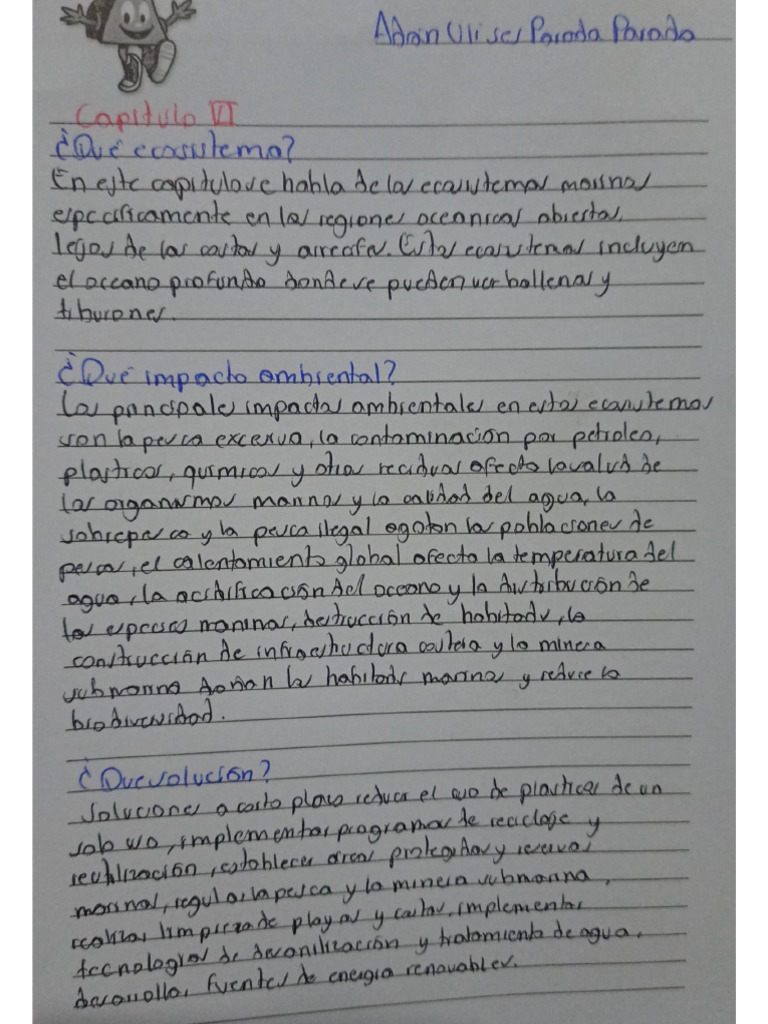 Adán Ulises Parada Parada
Capitulo VI
¿Qué ecosistema?
En este capitulo se habla de los ecosistemas marinos
especificamente en las regiones oceanicas abiertas,
lejos de las costas y arrecifes. Estos ecosistemas incluyen
el oceano profundo donde se pueden ver ballenas y
tiburones.
¿Qué impacto ambiental?
Los principales impactos ambientales en estos ecosistemas
son la pesca excesiva, la contaminación por petroleo,
plasticos, quimicos y otros residuos afecta la salud de
los organismos marinos y la calidad del agua, la
sobrepesca y la pesca ilegal agotan las poblaciones de
peces, el calentamiento global afecta la temperatura del
agua, la acidificación del oceano y la distribución de
las especies marinas, destrucción de habitads, la
construcción de infraestructura costera y la mineria
submarina dañan los habitads marinos y reduce la
biodiversidad.
¿Que solución?
Soluciones a corto plazo reducir el uso de plasticos de un
solo uso, implementar programas de reciclaje y
reutilización, establecer areas protegidas y reservas
marinas, regular la pesca y la mineria submarina,
realizar limpieza de playas y costas, implementar
tecnologias de desanilización y tratamiento de agua,
desarrollar fuentes de energia renovables.